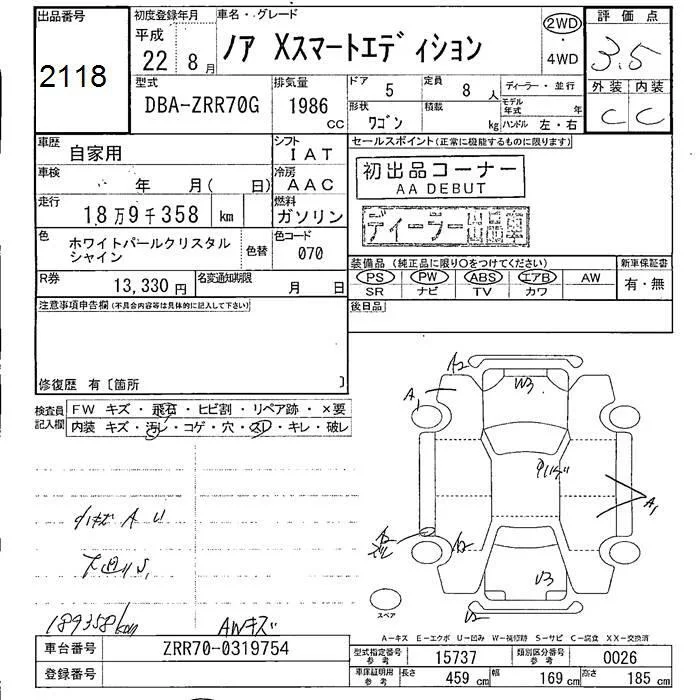 出品番号 初度登録年月 車名・グレード 2WD ・ 4WD 評価点
2118 平成 22 年 8 月 ノア Xスマートエディション 3.5
型式 排気量 ドア 5 定員 8 人 ディーラー・並行 外装 内装
DBA-ZRR70G 1986 CC 形状 ワゴン 積載 kg モデル年式 年 ハンドル 左・右 C C
車歴 自家用 シフト IAT セールスポイント(正常に機能するものに限ります)
車検 年 月( 日) 冷房 AAC 初出品コーナー
AA DEBUT
走行 18万9千358 km 燃料 ガソリン ディーラー出品車
色 ホワイトパールクリスタル
シャイン 色替 色コード 070
装備品(純正品に限り○をつけてください) 新車保証書
R券 13,330 円 名変通知期限 月 日 PS PW ABS エアB AW 有・無
SR ナビ TV カワ
注意事項申告欄(不具合内容等は具体的に記入して下さい) 後日品
修復歴 有〔箇所 〕
検査員
記入欄
FW キズ・飛石・ヒビ割・リペア跡・×要
内装 キズ・汚レ・コゲ・穴・スレ・キレ・破レ
A2
A1
W3
A1
A2
U3
U2
小キズ A U
189358km AWキズ
スペア
A-キズ E-エクボ U-凹み W-補修跡 S-サビ C-腐食 XX-交換済
車台番号 ZRR70-0319754 型式指定番号 参考 15737 類別区分番号 参考 0026
登録番号 車庫証明用 参考 長さ 459 cm 幅 169 cm 高さ 185 cm